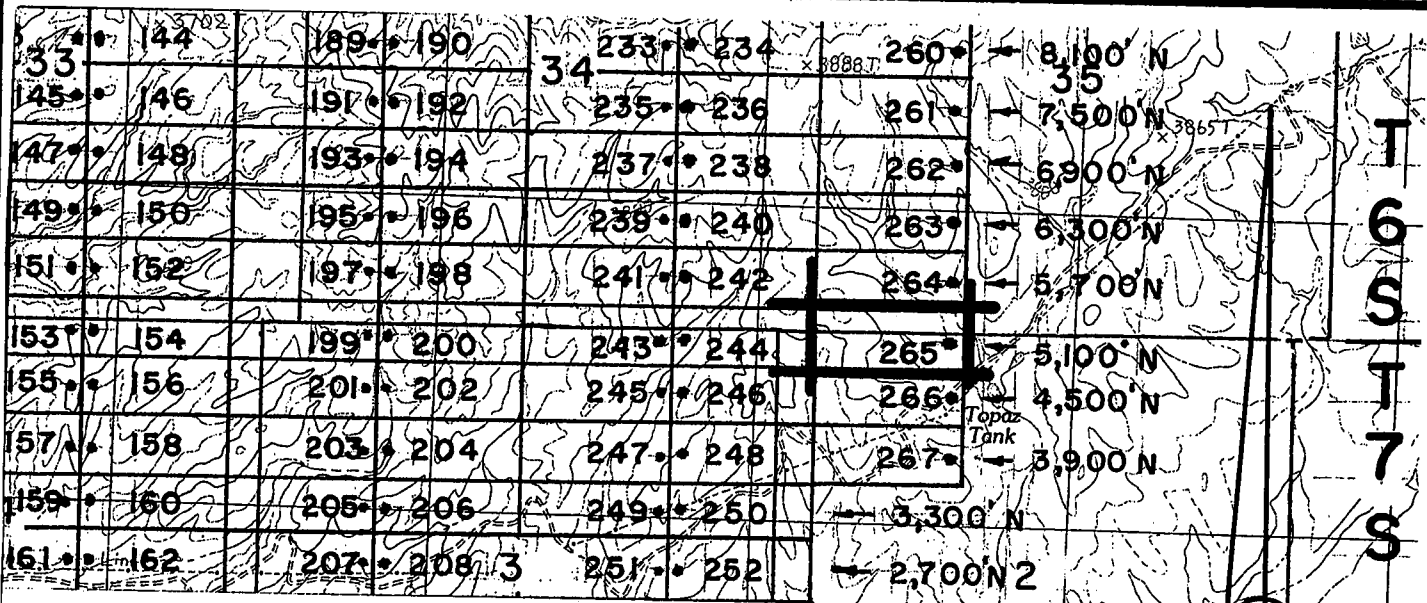 × 3702
144 189 190 233 234 260 8,100' N
33 34 × 3888 T 35
145 146 191 192 235 236 261 7,500' N
× 3865 T
147 148 193 194 237 238 262 6,900' N
T
149 150 195 196 239 240 263 6,300' N
6
151 152 197 198 241 242 264 5,700' N
S
153 154 199 200 243 244 265 5,100' N
155 156 201 202 245 246 266 4,500' N
T
Topaz
Tank
157 158 203 204 247 248 267 3,900' N
7
159 160 205 206 249 250 3,300' N
S
161 162 207 208 3 251 252 2,700' N 2